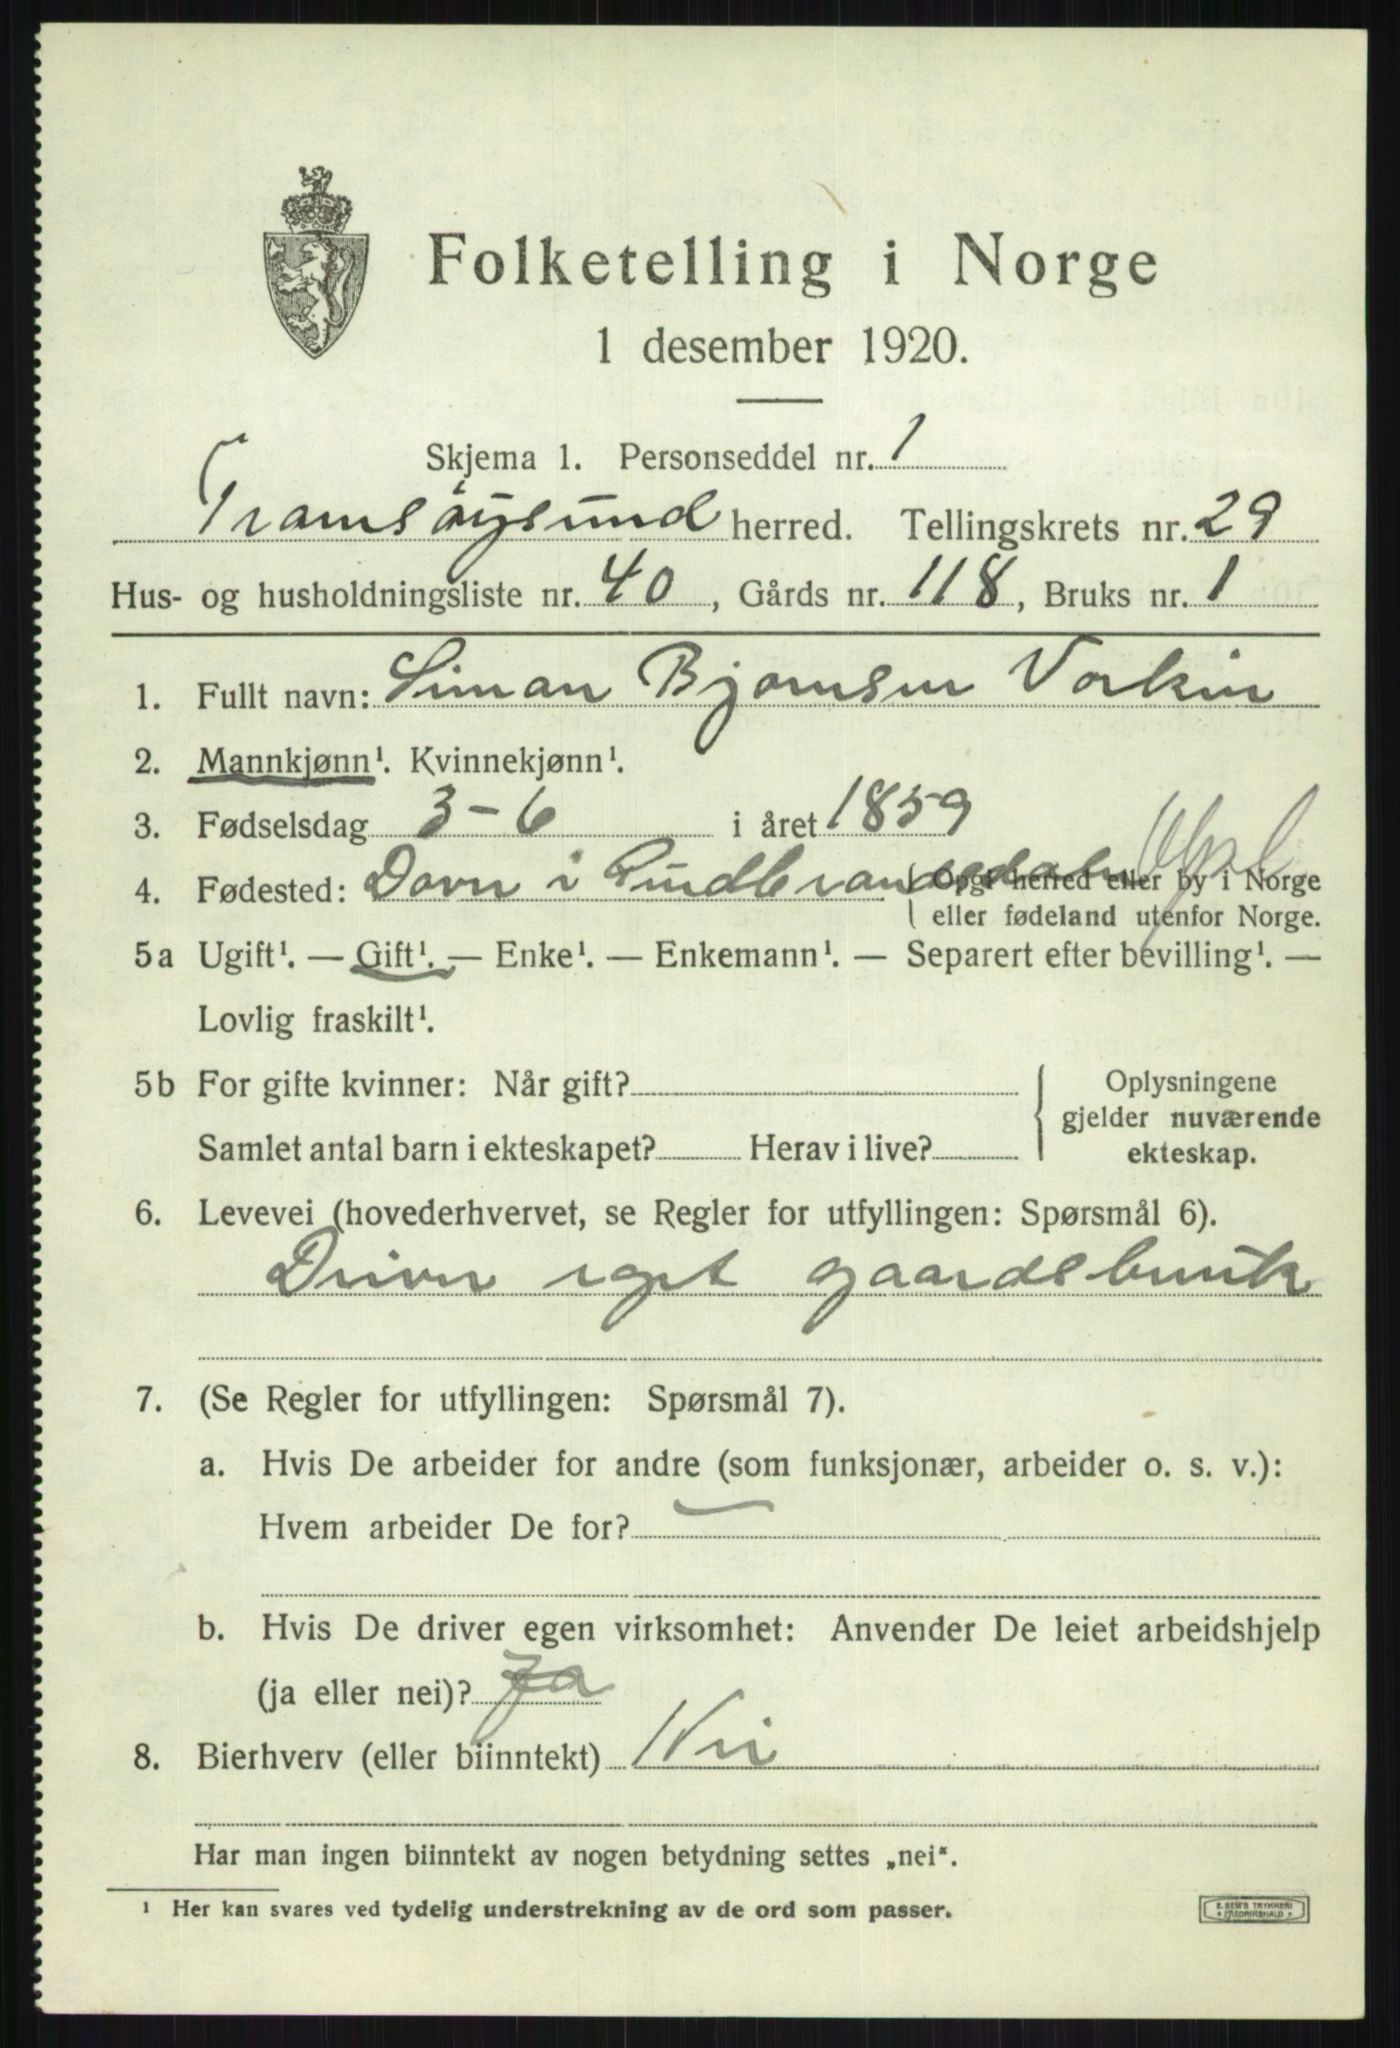 Folketelling i Norge
1 desember 1920.
Skjema 1. Personseddel nr. 1
Tromsøysund herred. Tellingskrets nr. 29
Hus- og husholdningsliste nr. 40, Gårds nr. 118, Bruks nr. 1
1. Fullt navn: Simon Bjørnsen
2. Mannkjønn¹. Kvinnekjønn¹.
3. Fødselsdag 3-6 i året 1859
4. Fødested: Dovre i Gudbrandsdalen (Opgi herred eller by i Norge
eller fødeland utenfor Norge.
5a Ugift¹. — Gift¹. — Enke¹. — Enkemann¹. — Separert efter bevilling¹. —
Lovlig fraskilt¹.
5b For gifte kvinner: Når gift?
Samlet antal barn i ekteskapet? Herav i live?
Oplysningene
gjelder nuværende
ekteskap.
6. Levevei (hovederhvervet, se Regler for utfyllingen: Spørsmål 6).
Driver eget gaardsbruk
7. (Se Regler for utfyllingen: Spørsmål 7).
a. Hvis De arbeider for andre (som funksjonær, arbeider o. s. v.):
Hvem arbeider De for? —
b. Hvis De driver egen virksomhet: Anvender De leiet arbeidshjelp
(ja eller nei)? Ja
8. Bierhverv (eller biinntekt) Nei
Har man ingen biinntekt av nogen betydning settes „nei".
¹ Her kan svares ved tydelig understrekning av de ord som passer.
E. SEM'S TRYKKERI
* FREDRIKSHALD *